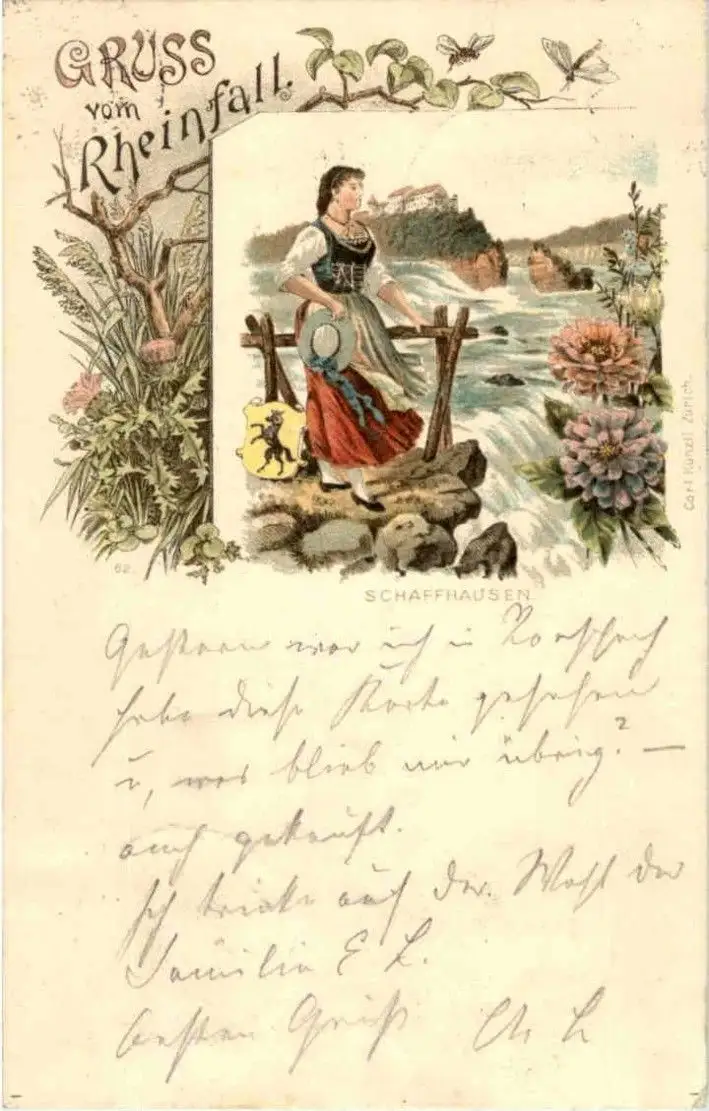 GRUSS
vom
Rheinfall.
Carl Künzli Zürich.
62.
SCHAFFHAUSEN
Gestern war ich in Rorschach
habe diese Karte gesehen
u, was blieb mir übrig? —
auch gekauft.
Ich trinke auf der. Wohl der
Familie E L.
besten Gruß